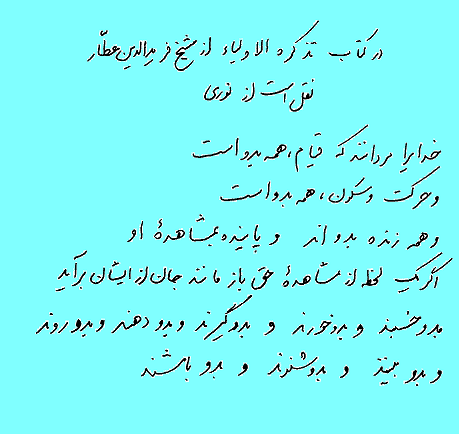 در کتاب تذکره الاولیاء از شیخ فریدالدین عطّار
نقل است از نوری
خدایرا مردانند که قیام، همه بدو است
و حرکت و سکون، همه بدو است
و همه زنده بدو اند و پاینده بمشاهدهٔ او
اگر یک لحظه از مشاهدهٔ حق باز مانند جان از ایشان برآید
بدو خسبند و بدو خورند و بدو گیرند و بدو دهند و بدو روند
و بدو بینند و بدو شنوند و بدو باشند